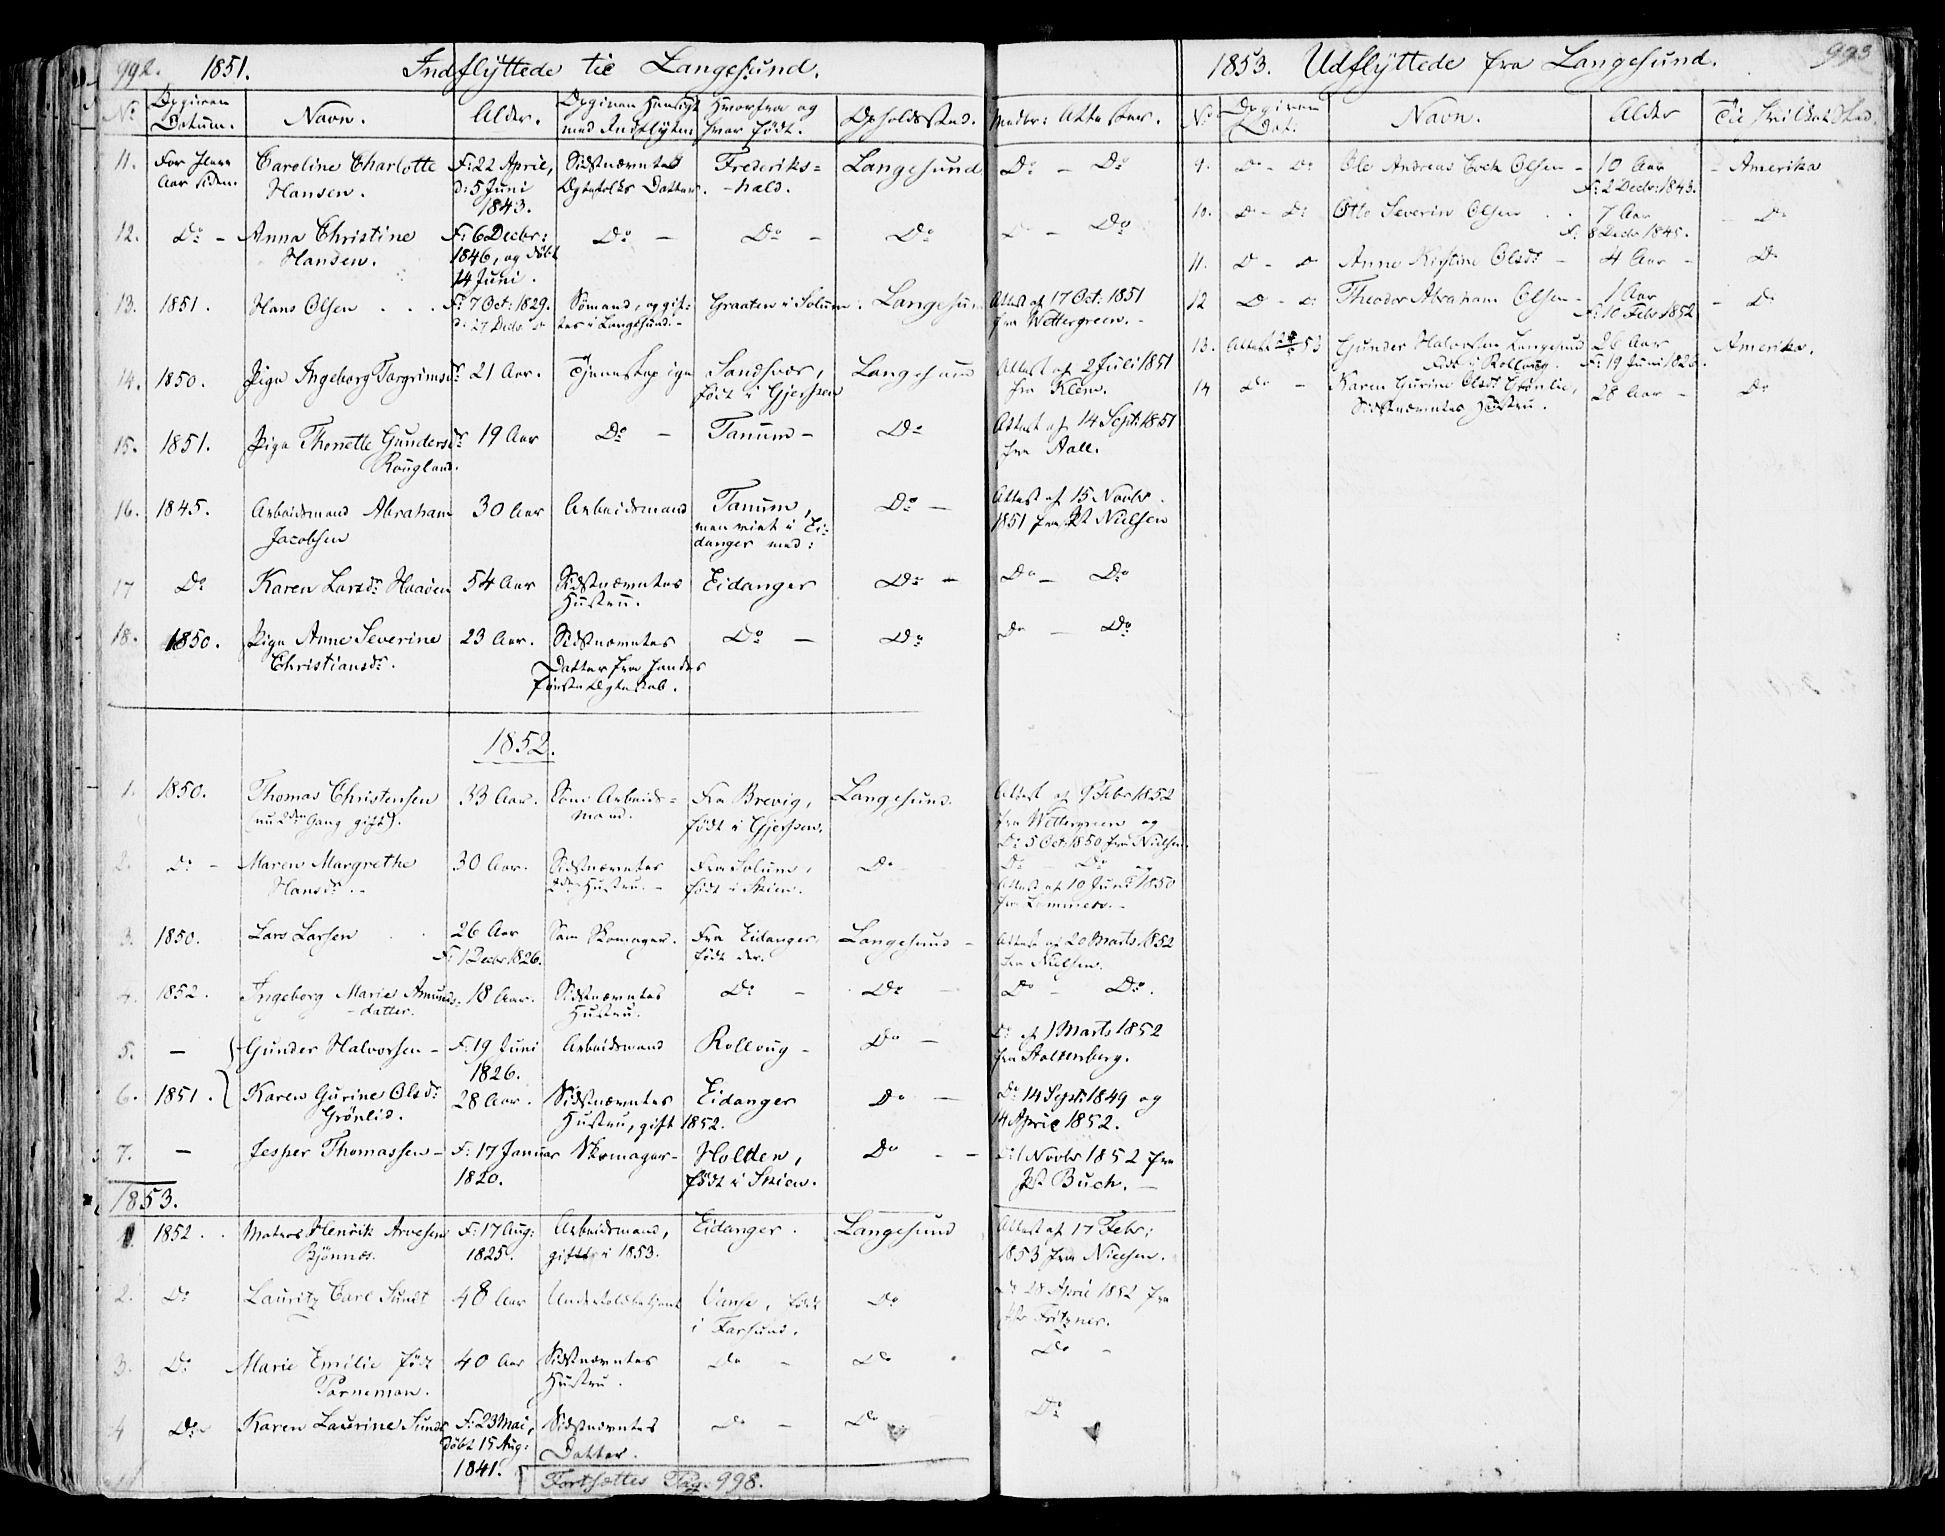 992. 1851. Indflyttede til Langesund.
No Opgiven Datum. Navn. Alder. Opgiven Hensigt med Indflytn: Hvorfra og hvor født. Opholdssted. Medbr: Attester.
11. For flere Aar siden. Caroline Charlotte Hansen. F: 22 April, d: 5 Juni 1843. Sidstnævntes Ægtefolks Datter. Frederiks=hald. Langesund Do – Do
12. Do – Anna Christine Hansen. F: 6 Decbr: 1846, og døbt 14 Juni. Do – Do – Do Do
13. 1851. Hans Olsen F: 7 Oct: 1829. d: 27 Decbr Sømand, og gif:tes i Langesund. – Graaten i Solum. Langesund Attest af 17 Oct: 1851 fra Wettergreen. –
14. 1850. Pige Ingeborg Torgrimsdr 21 Aar. Tjenestepige Sandsvær, født i Gjerpen Langesund Attest af 2 Juli 1851 fra Klem.
15. 1851. Pige Thonette Gundersdr Rougland. 19 Aar Do – Tanum – Do Attest af 14 Sept: 1851 fra Aall.
16. 1845. Arbeidsmand Abraham Jacobsen 30 Aar Arbeidsmand Tanum, men viet i Ei:danger med: Do – Attest af 15 Novbr. 1851 fra Pst Nielsen
17 Do Karen Larsdr Haaven 54 Aar Sidstnævntes Hustru. Eidanger Do – Do – Do
18. 1850. Pige Anne Severine Christiansdr. 23 Aar. Sidstnævntes Datter fra hendes første Ægteskab. Do – Do Do – Do
1852.
1. 1850. Thomas Christensen (nu 2den Gang gift). 33 Aar. Som Arbeids=mand. Fra Brevig, født i Gjerpen. Langesund. Attest af 9 Febr 1852 fra Wettergreen og Do 5 Oct 1850 fra Nielsen
2. Do – Maren Margrethe Hansdr. – 30 Aar. Sidstnævntes Hustru. – Fra Solum, født i Skien. Do Do Do og Attest af 10 Juni 1850 fra Lammers. –
3. 1850. Lars Larsen 26 Aar F: 1 Decbr 1826. Som Skomager. Fra Eidanger, født der. Langesund – Attest af 20 Marts 1852 fra Nielsen.
4. 1852. Ingeborg Marie Amunds-datter. 18 Aar. Sidstnævntes Hustru. Do – Do – Do – Do.
5. – Gunder Halvorsen – F: 19 Juni 1826. Arbeidsmand Rolloug – Do – Do af 1 Marts 1852 fra Stoltenberg.
6. 1851. Karen Gurine Olsdr Grönlid. 28 Aar. Sidstnævntes Hustru, gift 1852. Eidanger Do – Do 14 Sept: 1849 og 14 April 1852.
7. – Jesper Thomassen – F: 17 Januar 1820. Skomager – Holden, født i Skien. Do – – Do 1 Novbr 1852 fra Pst Buch. –
1853.
1. 1852. Matros Henrik Arvesen Bjönnes. F: 17 Aug: 1825. Arbeidsmand, giftes i 1853. Eidanger. Langesund Attest af 17 Febr: 1853 fra Nielsen.
2. Do Lauritz Carl Sundt 48 Aar Undertoldbetjent Vanse, født i Farsund. Do Do 28 April 1852 fra Pst Fritzner.
3. Do Marie Emilie født Parneman. 40 Aar Sidstnævntes Hustru. Do – Do Do –
4 Do Karen Laurine Sundt F: 23 Mai, døbt 15 Aug: 1841. Sidstnævntes Datter. Do – Do Do
Fortsættes Pag. 998.
1853. Udflyttede fra Langesund. 993
No Opgiven Dat: Navn. Alder Til hvilket Sted.
9. Do – Do Ole Andreas Olsen – 10 Aar F: 2 Decbr: 1843. – Amerika
10. Do – Do Otto Severin Olsen 7 Aar F: 8 Decbr 1845. – Do
11. Do – Do Anne Kirstine Olsdr – 4 Aar – Do
12 Do – Do Theodor Abraham Olsen – 1 Aar F: 10 Febr 1852 – Do
13. Attest 53 Gunder Halvorsen Langesund født i Rolloug. 26 Aar F: 19 Juni 1826. Amerika.
14 Do – Karen Gurine Olsdr Grönlie, Sidstnævntes Hustru. 28 Aar – Do